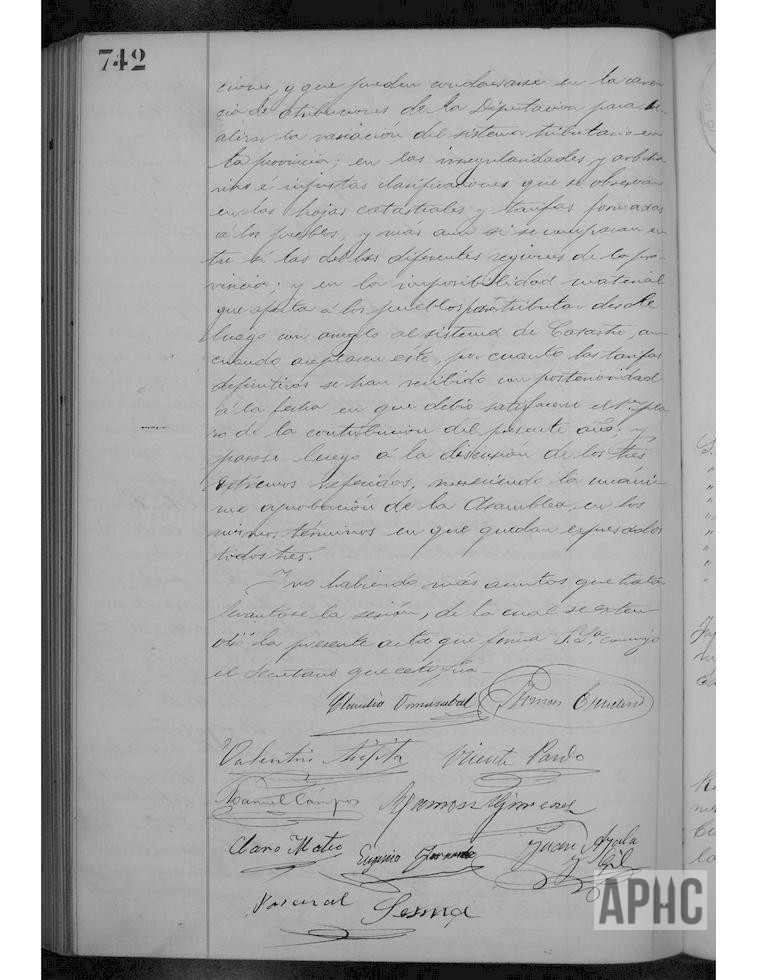 742
ciones, y que pueden condensarse en la caren
cia de atribuciones de la Diputacion para re-
alizar la variación del sistema tributario en
la provincia; en las irregularidades y arbitra
rias é injustas clasificaciones que se observan
en las hojas catastrales y tarifas formadas
á los pueblos, y más aun si se comparan en
tre sí las de las diferentes regiones de la pro-
vincia; y en la imposibilidad material
que afecta á los pueblos para tributar desde
luego con arreglo al sistema de Catastro, aun
cuando aceptasen este, por cuanto las tarifas
definitivas se han recibido con posterioridad
á la fecha en que debió satisfacerse el 1er pla
zo de la contribucion del presente año: y
pasose luego á la discusión de los tres
extremos referidos, mereciendo la unáni-
me aprobación de la Asamblea, en los
mismos términos en que quedan expresados
todos tres.
Y no habiendo más asuntos que tratar
levantose la sesión, de la cual se exten
dió la presente acta que firma S. Sa conmigo
el Secretario que certifica.
Claudio Ramon
Valentin Vicente Pardo
Manuel Campos Ramon Gimenez
Claro Mateo Eugenio Juan Ayala
y Gil
Pascual Serma
APHC